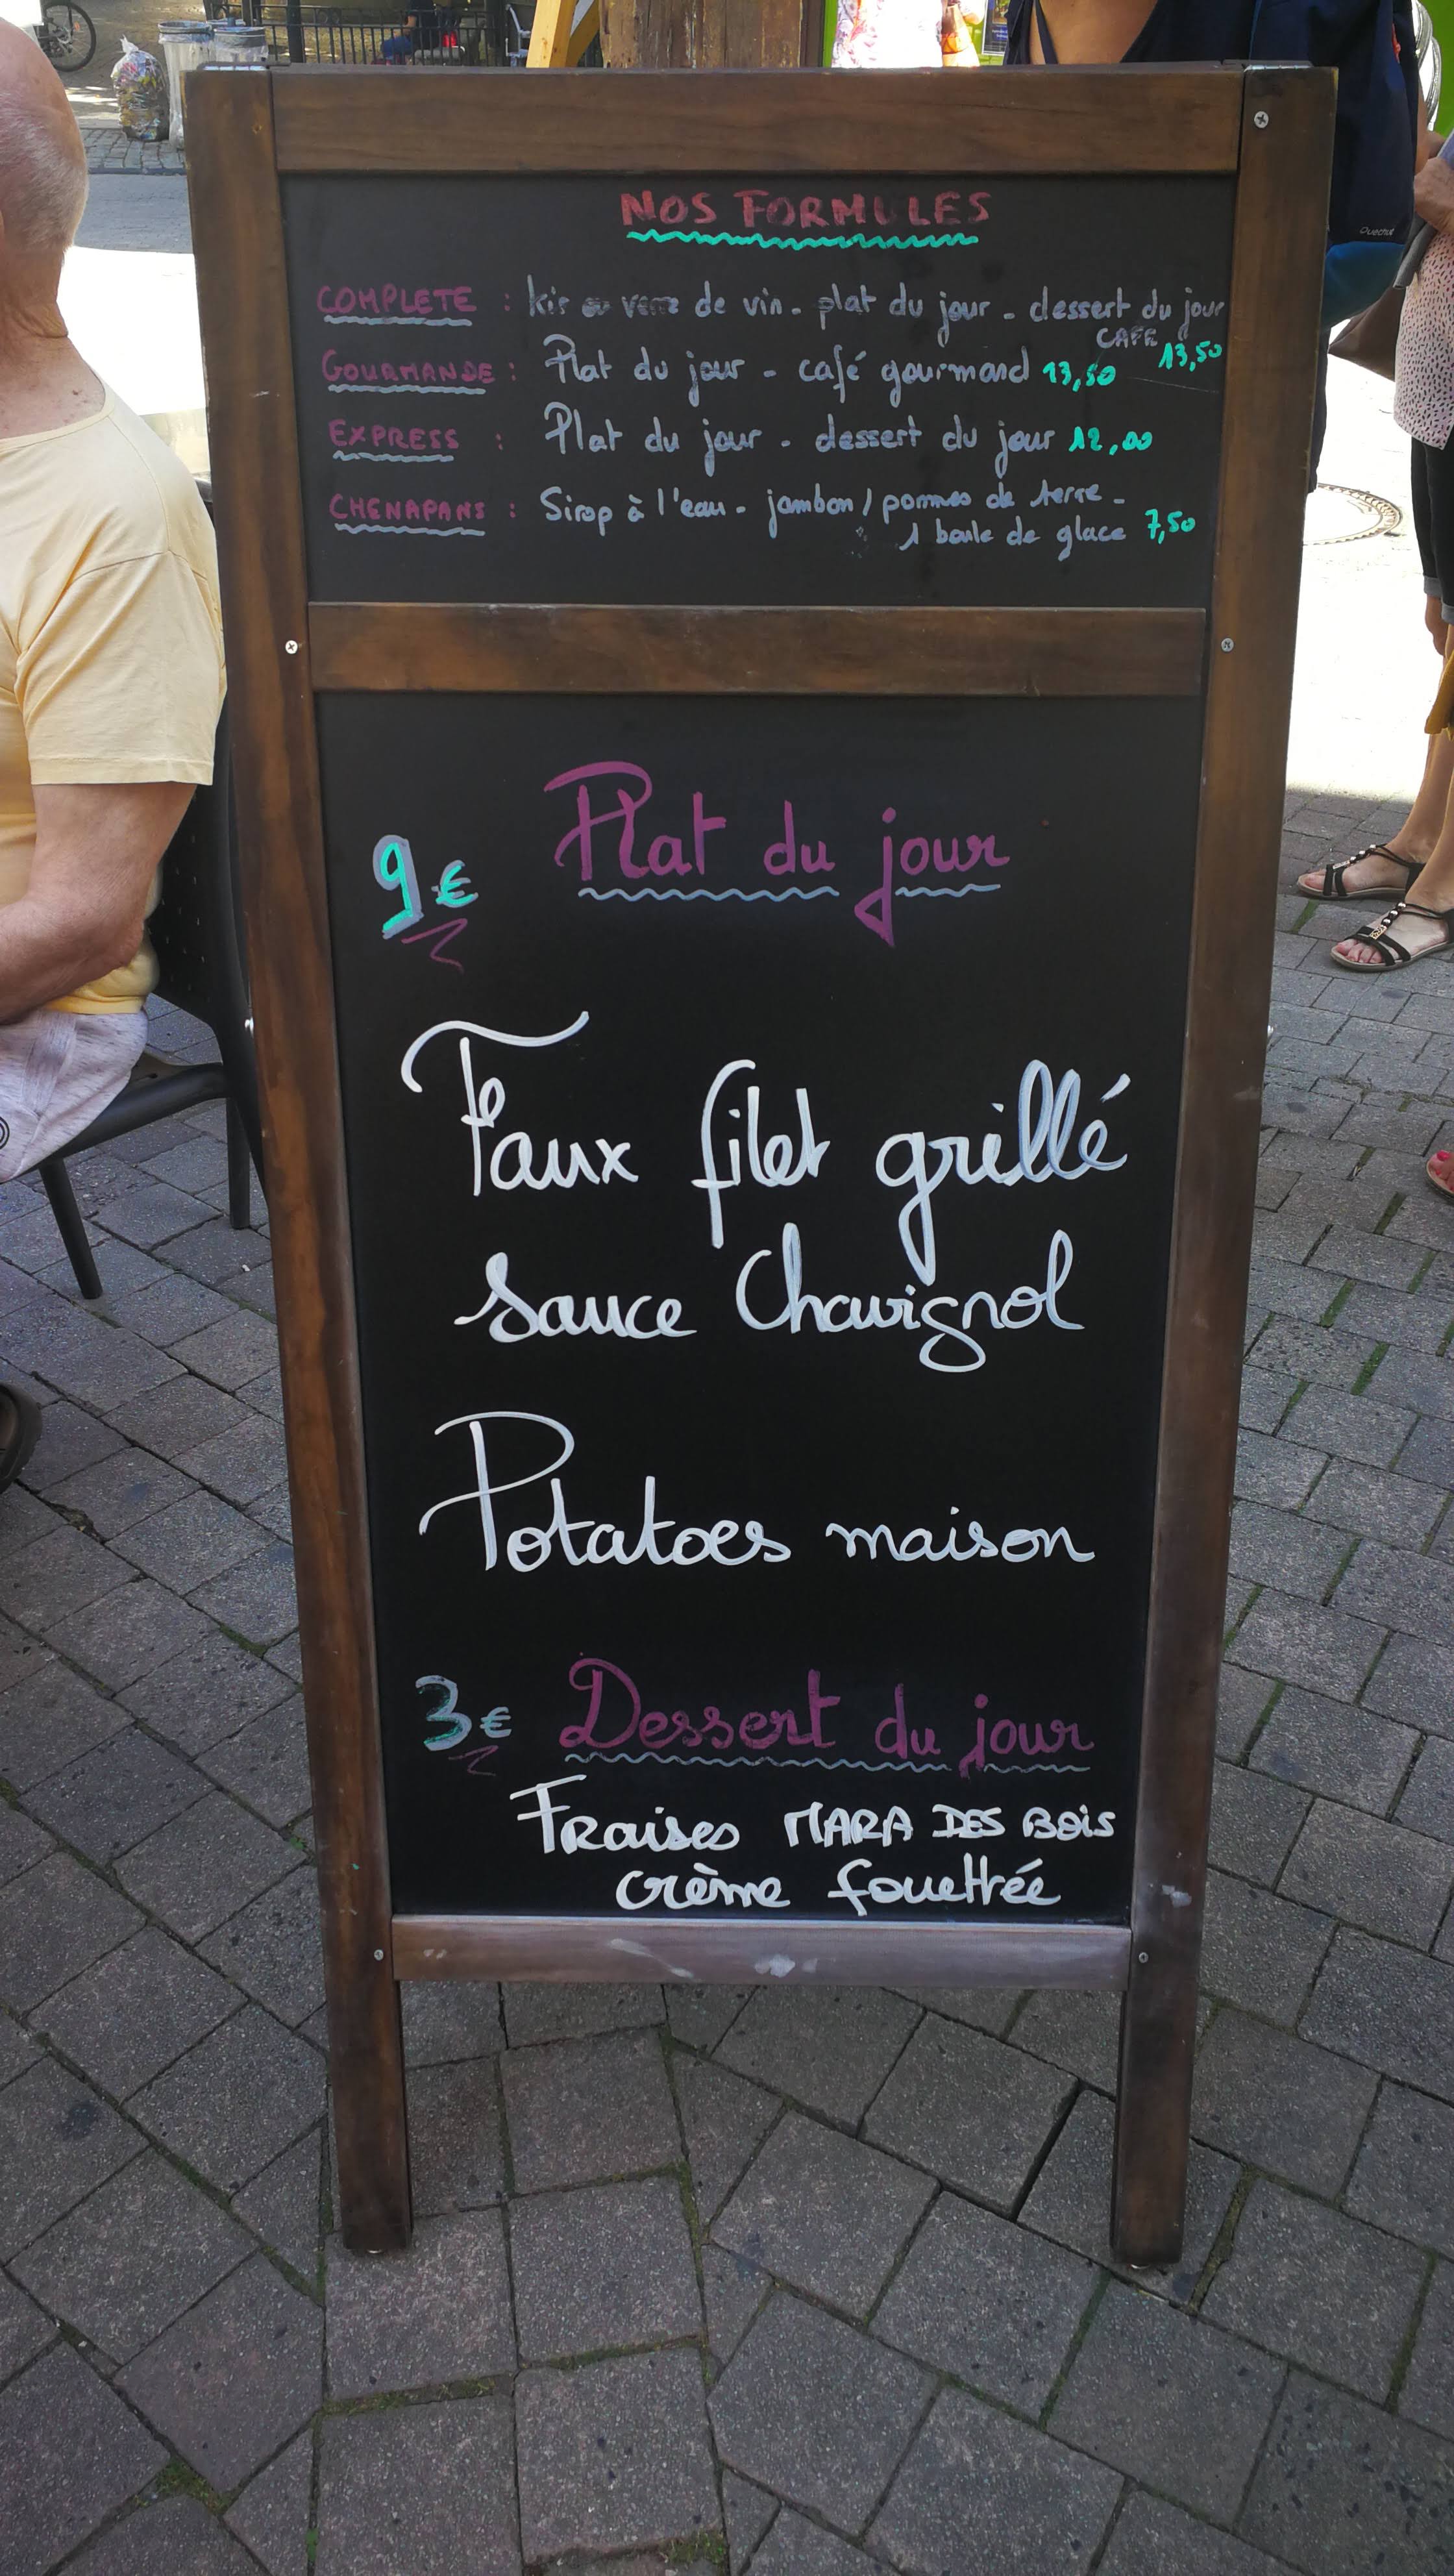 NOS FORMULES
COMPLETE : kir ou verre de vin - plat du jour - dessert du jour
CAFE 13,50
GOURMANDE : Plat du jour - café gourmand 13,50
EXPRESS : Plat du jour - dessert du jour 12,00
CHENAPANS : Sirop à l'eau - jambon / pommes de terre -
1 boule de glace 7,50
9€ Plat du jour
Faux filet grillé
sauce Chavignol
Potatoes maison
3€ Dessert du jour
Fraises MARA DES BOIS
crème fouettrée
Quechua